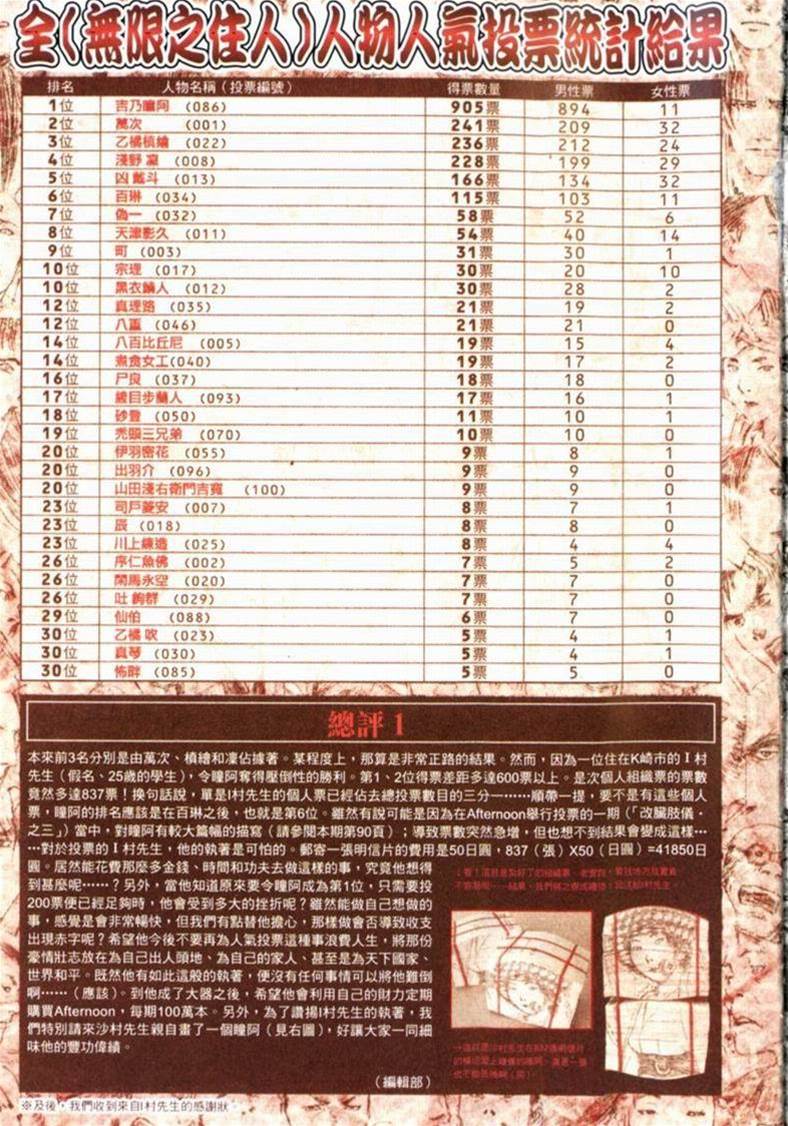 全(無限之住人)人物人氣投票統計結果
排名 人物名稱（投票編號） 得票數量 男性票 女性票
1位 吉乃瞳阿 (086) 905票 894 11
2位 萬次 (001) 241票 209 32
3位 乙橘槙繪 (022) 236票 212 24
4位 淺野 凜 (008) 228票 199 29
5位 凶 戴斗 (013) 166票 134 32
6位 百琳 (034) 115票 103 11
7位 偽一 (032) 58票 52 6
8位 天津影久 (011) 54票 40 14
9位 町 (003) 31票 30 1
10位 宗理 (017) 30票 20 10
10位 黑衣鯖人 (012) 30票 28 2
12位 真理路 (035) 21票 19 2
12位 八重 (046) 21票 21 0
14位 八百比丘尼 (005) 19票 15 4
14位 煮食女工(040) 19票 17 2
16位 尸良 (037) 18票 18 0
17位 綾目步蘭人 (093) 17票 16 1
18位 砂登 (050) 11票 10 1
19位 禿頭三兄弟 (070) 10票 10 0
20位 伊羽密花 (055) 9票 8 1
20位 出羽介 (096) 9票 9 0
20位 山田淺右衛門吉寬 (100) 9票 9 0
23位 司戶菱安 (007) 8票 7 1
23位 辰 (018) 8票 8 0
23位 川上鍊造 (025) 8票 4 4
26位 序仁魚佛 (002) 7票 5 2
26位 閑馬永空 (020) 7票 7 0
26位 吐 鉤群 (029) 7票 7 0
29位 仙伯 (088) 6票 7 0
30位 乙橘 吹 (023) 5票 4 1
30位 真琴 (030) 5票 4 1
30位 怖畔 (085) 5票 5 0
總評 1
本來前3名分別是由萬次、槙繪和凜佔據著。某程度上，那算是非常正路的結果。然而，因為一位住在K崎市的I村
先生（假名、25歲的學生），令瞳阿奪得壓倒性的勝利。第1、2位得票差距多達600票以上。是次個人組織票的票數
竟然多達837票！換句話說，單是I村先生的個人票已經佔去總投票數目的三分一……順帶一提，要不是有這些個人
票，瞳阿的排名應該是在百琳之後，也就是第6位。雖然有說可能是因為在Afternoon舉行投票的一期（「改臟肢儀・
之三」）當中，對瞳阿有較大篇幅的描寫（請參閱本期第90頁）；導致票數突然急增，但也想不到結果會變成這樣…
…對於投票的I村先生，他的執著是可怕的。郵寄一張明信片的費用是50日圓，837（張）X50（日圓）=41850日
圓。居然能花費那麼多金錢、時間和功夫去做這樣的事，究竟他想得
到甚麼呢……？另外，當他知道原來要令瞳阿成為第1位，只需要投
200票便已經足夠時，他會受到多大的挫折呢？雖然能做自己想做的
事，感覺是會非常暢快，但我們有點替他擔心，那樣做會否導致收支
出現赤字呢？希望他今後不要再為人氣投票這種事浪費人生，將那份
豪情壯志放在為自己出人頭地、為自己的家人、甚至是為天下國家、
世界和平。既然他有如此這般的執著，便沒有任何事情可以將他難倒
啊……（應該）。到他成了大器之後，希望他會利用自己的財力定期
購買Afternoon，每期100萬本。另外，為了讚揚I村先生的執著，我
們特別請來沙村先生親自畫了一個瞳阿（見右圖），好讓大家一同細
味他的豐功偉績。
（編輯部）
※及後，我們收到來自I村先生的感謝狀。